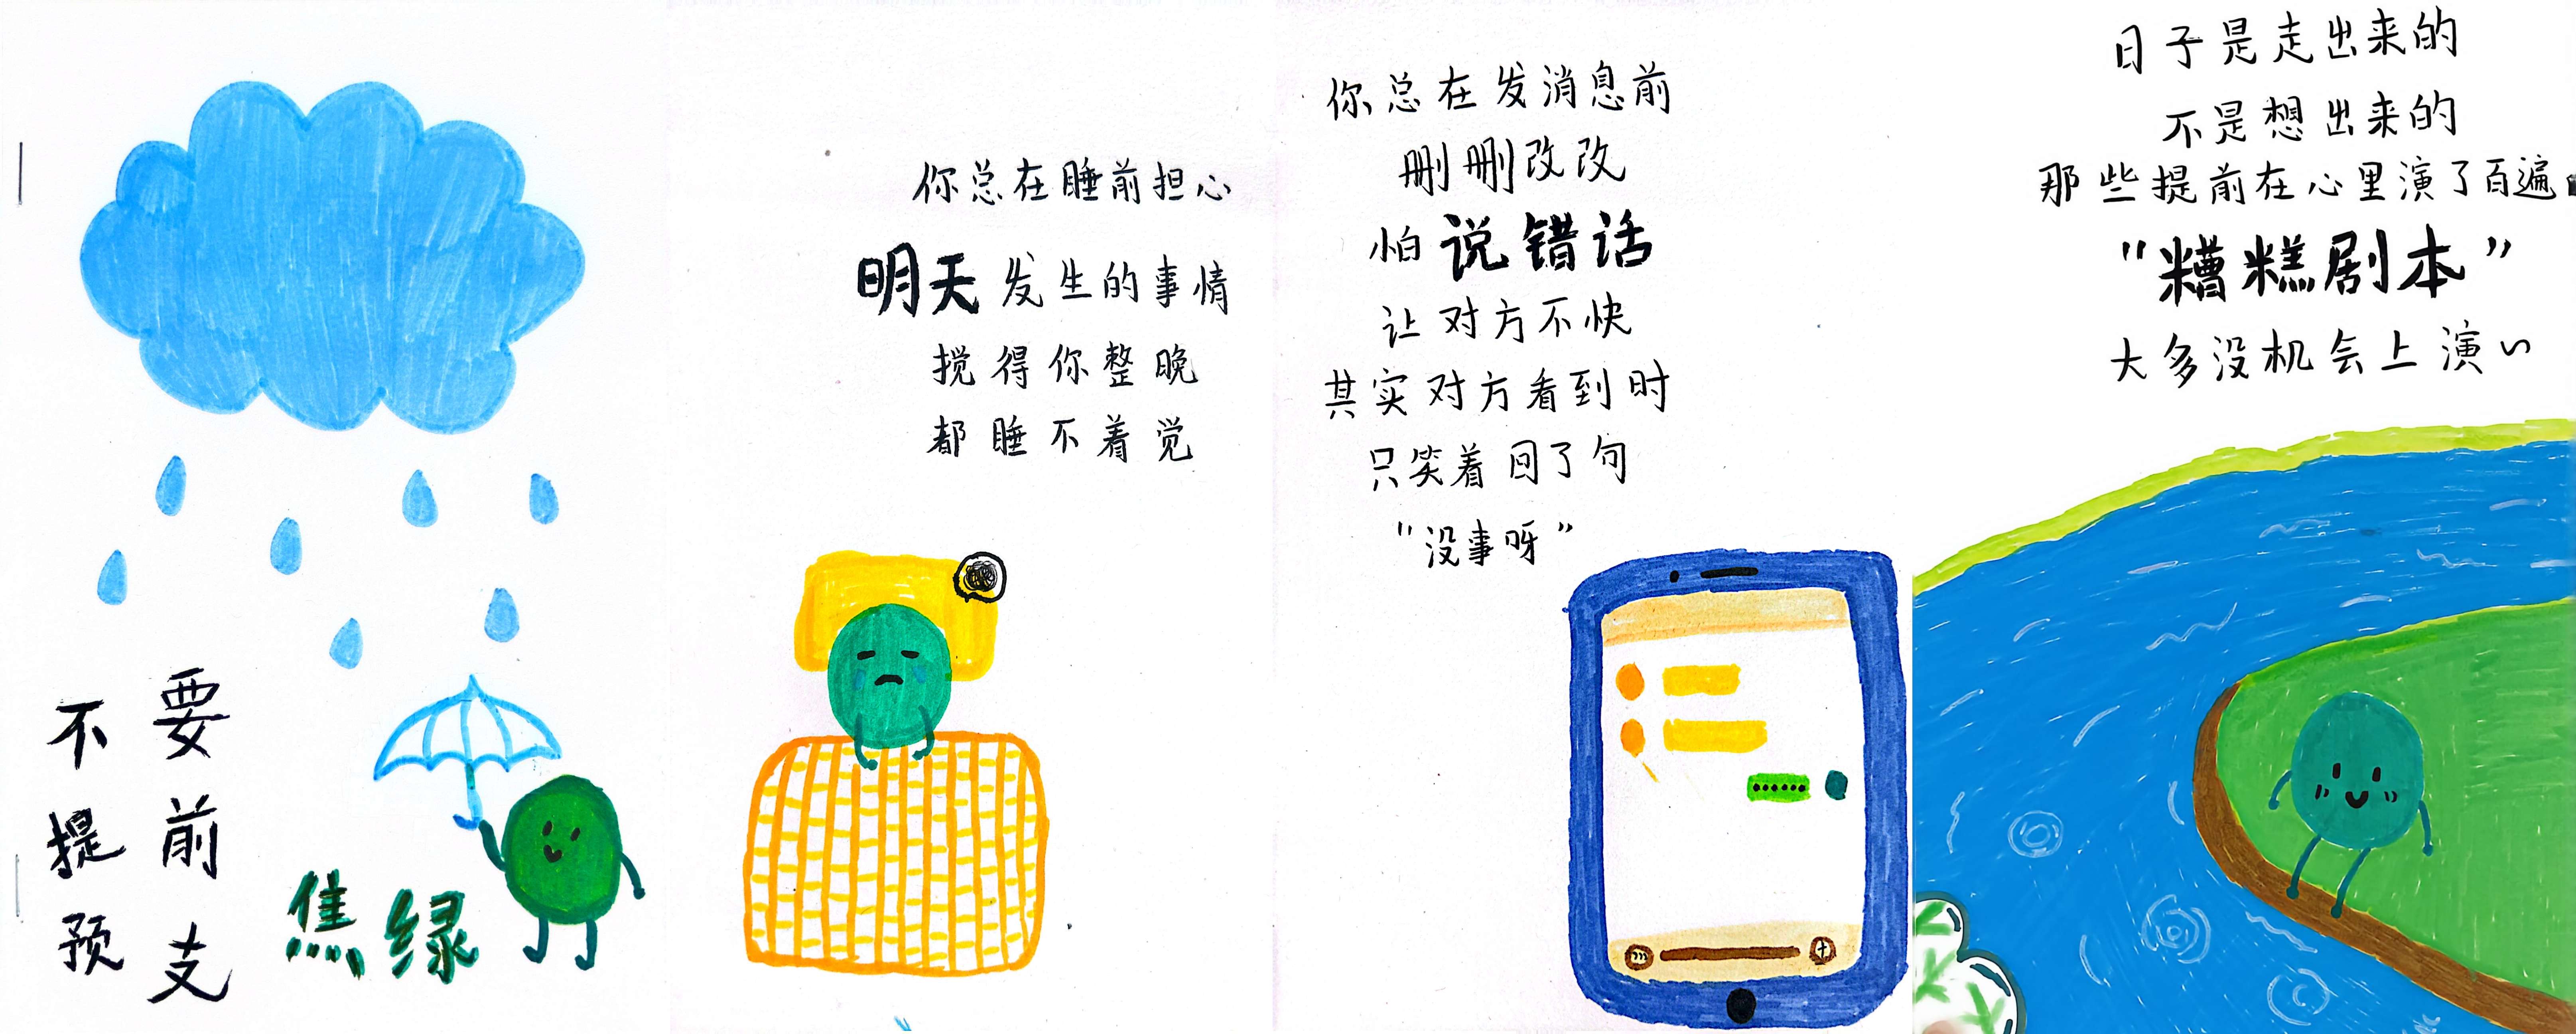 不要
提前
预支
焦绿
你总在睡前担心
明天发生的事情
搅得你整晚
都睡不着觉
你总在发消息前
删删改改
怕说错话
让对方不快
其实对方看到时
只笑着回了句
"没事呀"
日子是走出来的
不是想出来的
那些提前在心里演了百遍
"糟糕剧本"
大多没机会上演~